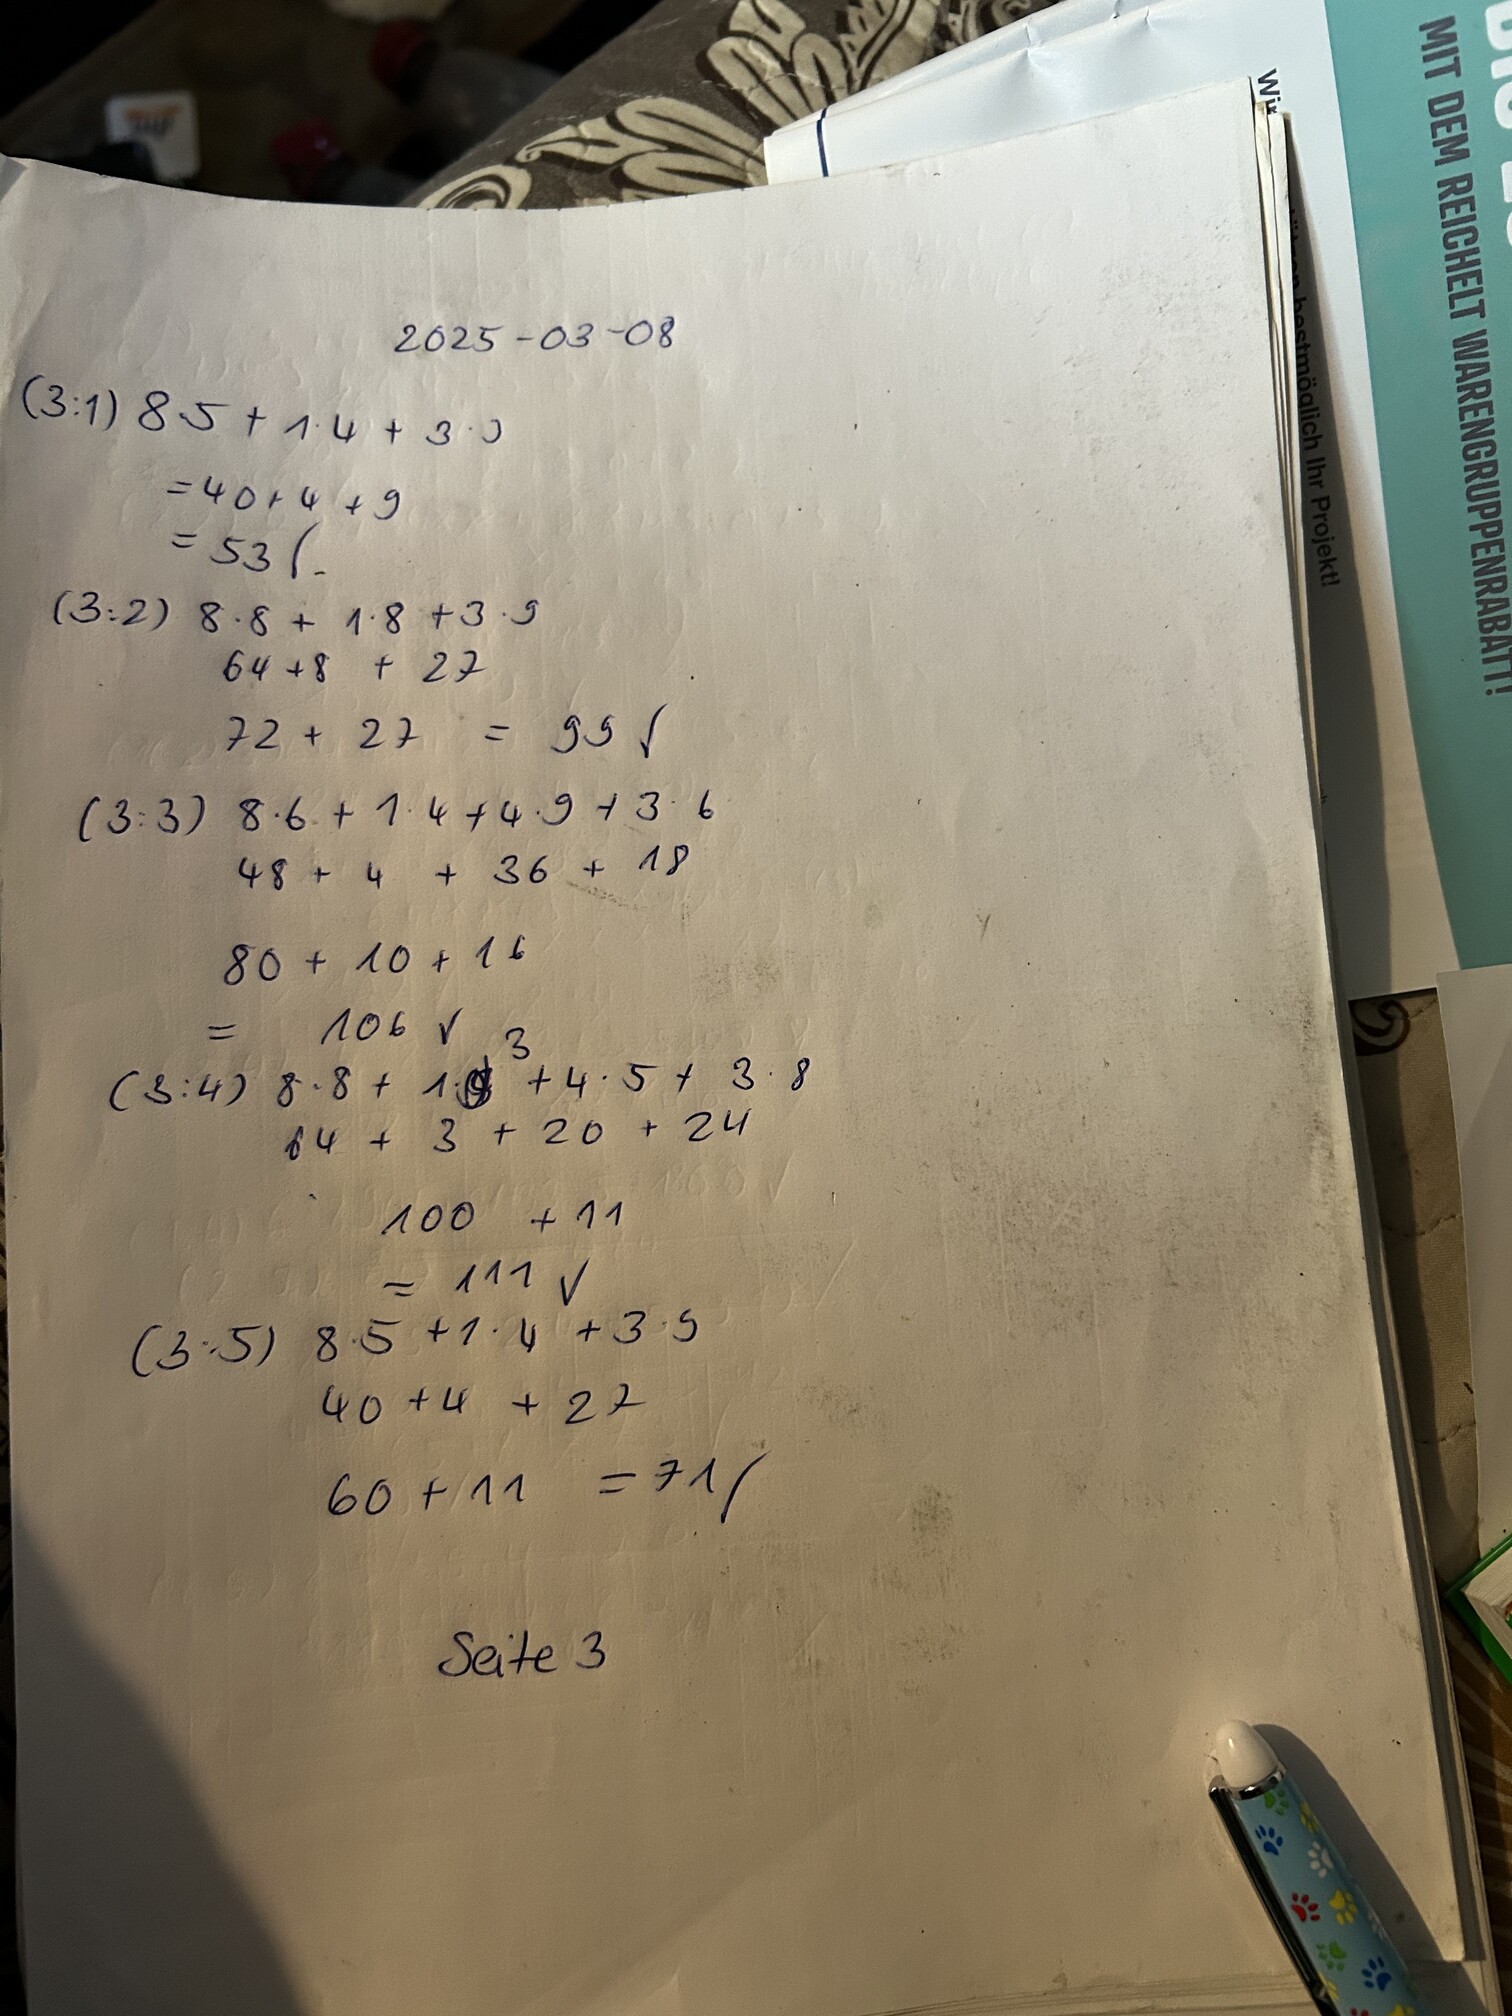 2025-03-08
(3:1) 8·5 + 1·4 + 3·3
= 40 + 4 + 9
= 53 ✓
(3:2) 8·8 + 1·8 + 3·9
64 + 8 + 27
72 + 27 = 99 ✓
(3:3) 8·6 + 1·4 + 4·9 + 3·6
48 + 4 + 36 + 18
80 + 10 + 16
= 106 ✓
(3:4) 8·8 + 1·3 + 4·5 + 3·8
64 + 3 + 20 + 24
100 + 11
= 111 ✓
(3:5) 8·5 + 1·4 + 3·9
40 + 4 + 27
60 + 11 = 71 ✓
Seite 3
MIT DEM REICHELT WARENGRUPPENRABATT!
bestmöglich Ihr Projekt!